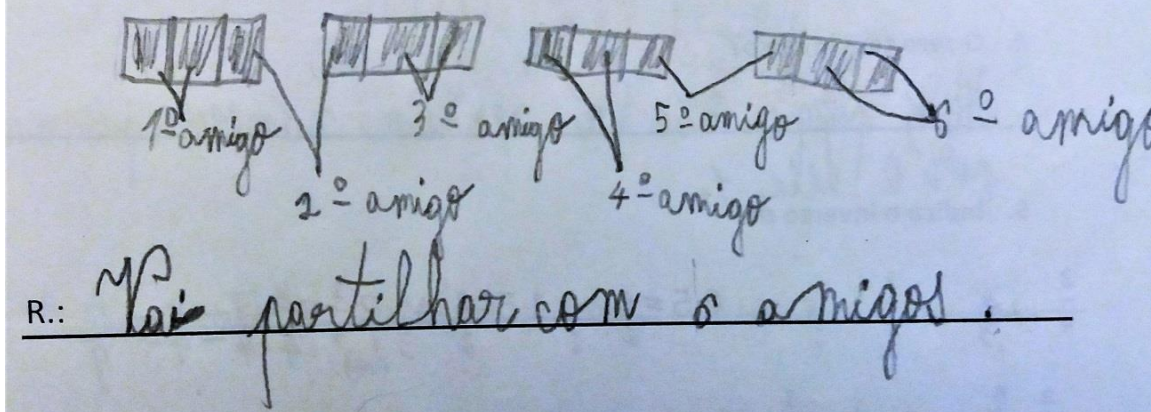 1º amigo 3º amigo 5º amigo 6º amigo
2º amigo 4º amigo
R.: Vai partilhar com 6 amigos.